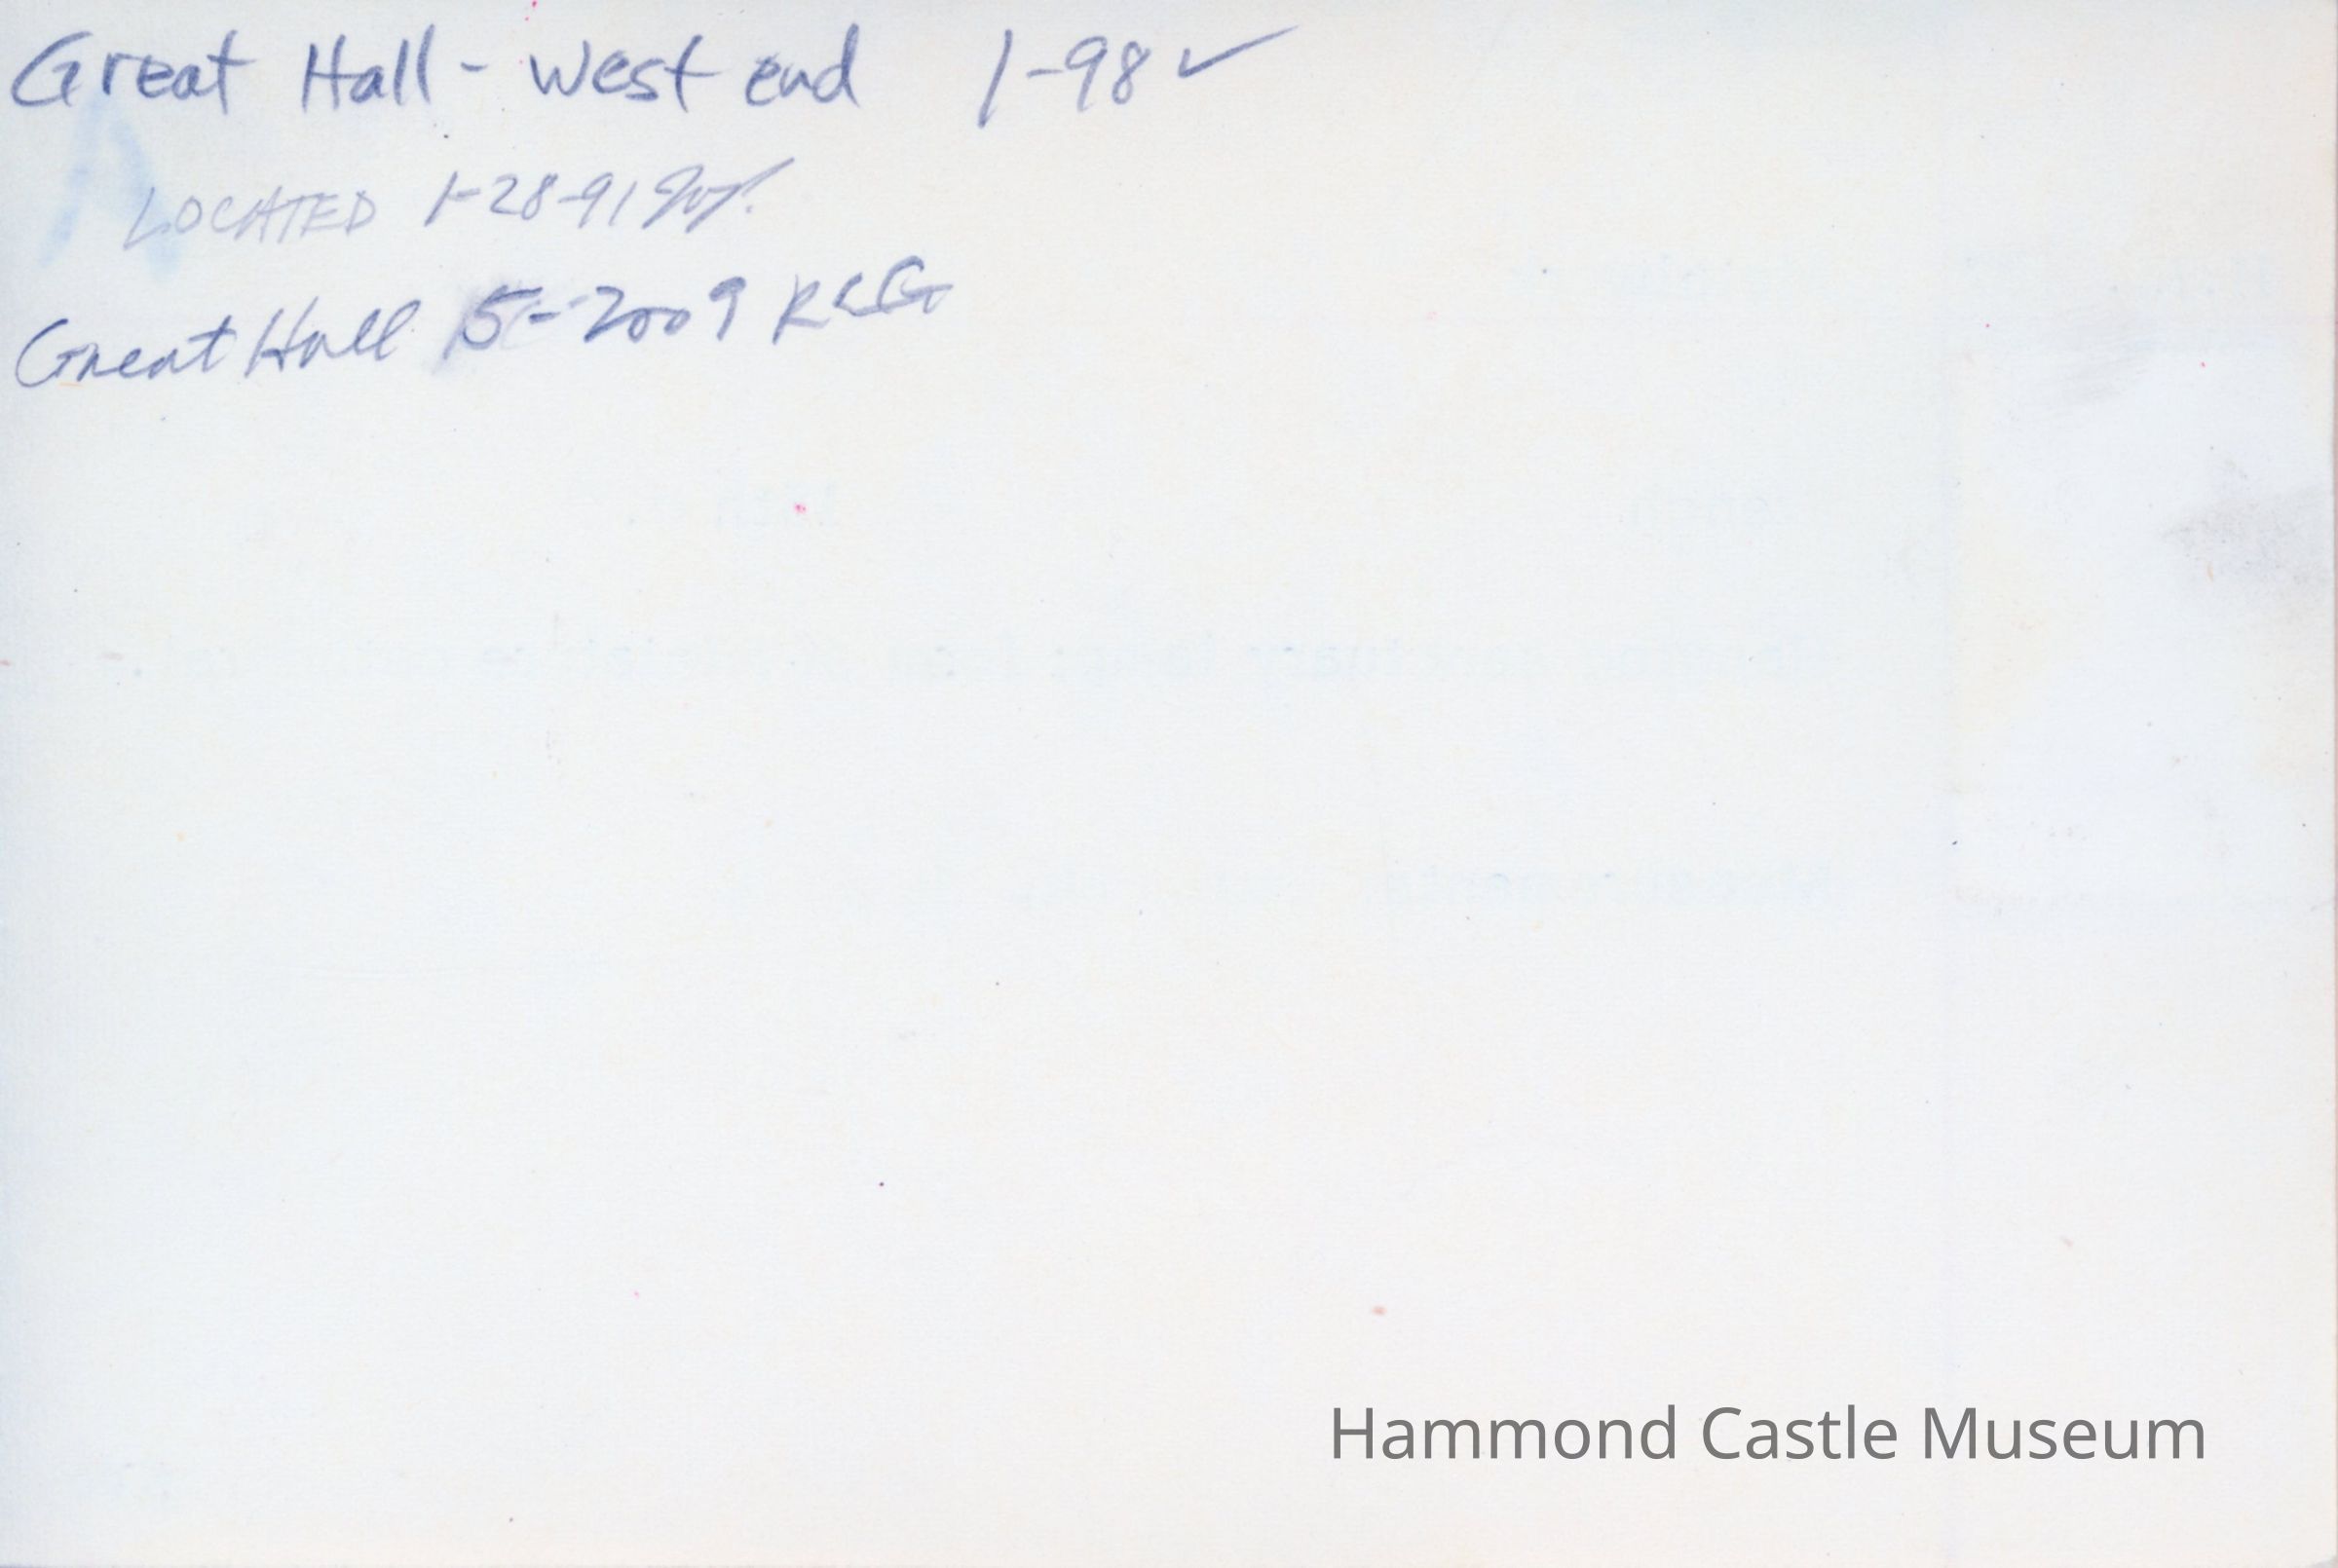 Great Hall - West end 1-98 ✓
LOCATED 1-28-91
Great Hall 5-2009 RCG
Hammond Castle Museum